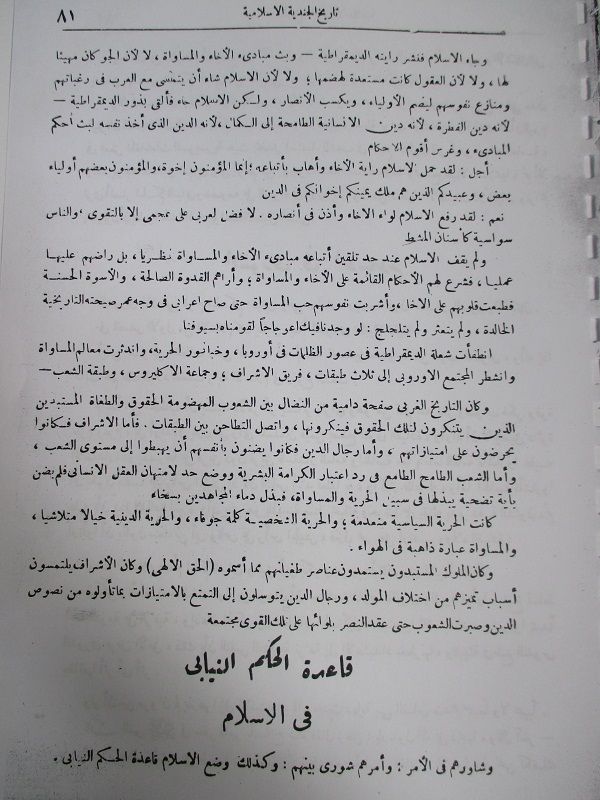 تاريخ الجندية الاسلامية
٨١
وجاء الاسلام فنشر رايته الديمقراطية — وبث مبادىء الأخاء والمساواة ، لا لأن الجو كان مهيئا
لها ، ولا لأن العقول كانت مستعدة لهضمها ؛ ولا لأن الاسلام شاء أن يتمشى مع العرب فى رغباتهم
ومنازع نفوسهم ليضم الأولياء ، ويكسب الأنصار ، ولكن الاسلام جاء فألقى بذور الديمقراطية —
لأنه دين الفطرة ، لأنه دين الانسانية الطامحة إلى الكمال ، لأنه الدين الذى أخذ نفسه لبث أحكم
المبادىء ، وغرس أقوم الاحكام
أجل : لقد حمل الاسلام راية الأخاء وأهاب بأتباعه ؛ إنما المؤمنون إخوة ، والمؤمنون بعضهم أولياء
بعض ، وعبيدكم الذين هم ملك يمينكم إخوانكم فى الدين
نعم : لقد رفع الاسلام لواء الاخاء وأذن فى أنصاره . لا فضل لعربى على عجمى إلا بالتقوى ، والناس
سواسية كأسنان المشط
ولم يقف الاسلام عند حد تلقين أتباعه مبادىء الأخاء والمساواة نظريا ، بل راضهم عليها
عمليا ، فشرع لهم الأحكام القائمة على الأخاء والمساواة ؛ وأراهم القدوة الصالحة ، والأسوة الحسنة
فطبعت قلوبهم على الاخا ، وأشربت نفوسهم حب المساواة حتى صاح اعرابى فى وجه عمر صيحته التاريخية
الخالدة ، ولم يتعثر ولم يتلجلج : لو وجدنا فيك اعوجاجاً لقومناه بسيوفنا
انطفأت شعلة الديمقراطية فى عصور الظلمات فى أوروبا ، وخبا نور الحرية ، واندثرت معالم المساواة
وانشطر المجتمع الاوروبى إلى ثلاث طبقات ، فريق الاشراف ؛ وجماعة الاكليروس ، وطبقة الشعب —
وكان التاريخ الغربى صفحة دامية من النضال بين الشعوب المهضومة الحقوق والطغاة المستبدين
الذين يتنكرون لتلك الحقوق فينكرونها ، واتصل التطاحن بين الطبقات . فأما الاشراف فكانوا
يحرضون على امتيازاتهم ، وأما رجال الدين فكانوا يضنون بأنفسهم أن يهبطوا إلى مستوى الشعب ،
وأما الشعب الطامح الطامع فى رد اعتبار الكرامة البشرية ووضع حد لامتهان العقل الانسانى فلم يضن
بأية تضحية يبذلها فى سبيل الحرية والمساواة ، فبذل دماء المجاهدين بسخاء
كانت الحرية السياسية منعدمة ؛ والحرية الشخصية كلمة جوفاء ، والحرية الدينية خيالا متلاشيا ،
والمساواة عبارة ذاهبة فى الهواء .
وكان الملوك المستبدون يستمدون عناصر طغيانهم مما أسموه (الحق الالهى) وكان الأشراف يلتمسون
أسباب تميزهم من اختلاف المولد ، ورجال الدين يتوسلون إلى التمتع بالامتيازات بما تأولوه من نصوص
الدين وصبرت الشعوب حتى عقد النصر بلوائها على تلك القوى مجتمعة
قاعدة الحكم النيابى
فى الاسلام
وشاورهم فى الأمر : وأمرهم شورى بينهم : وكذلك وضع الاسلام قاعدة الحكم النيابى .